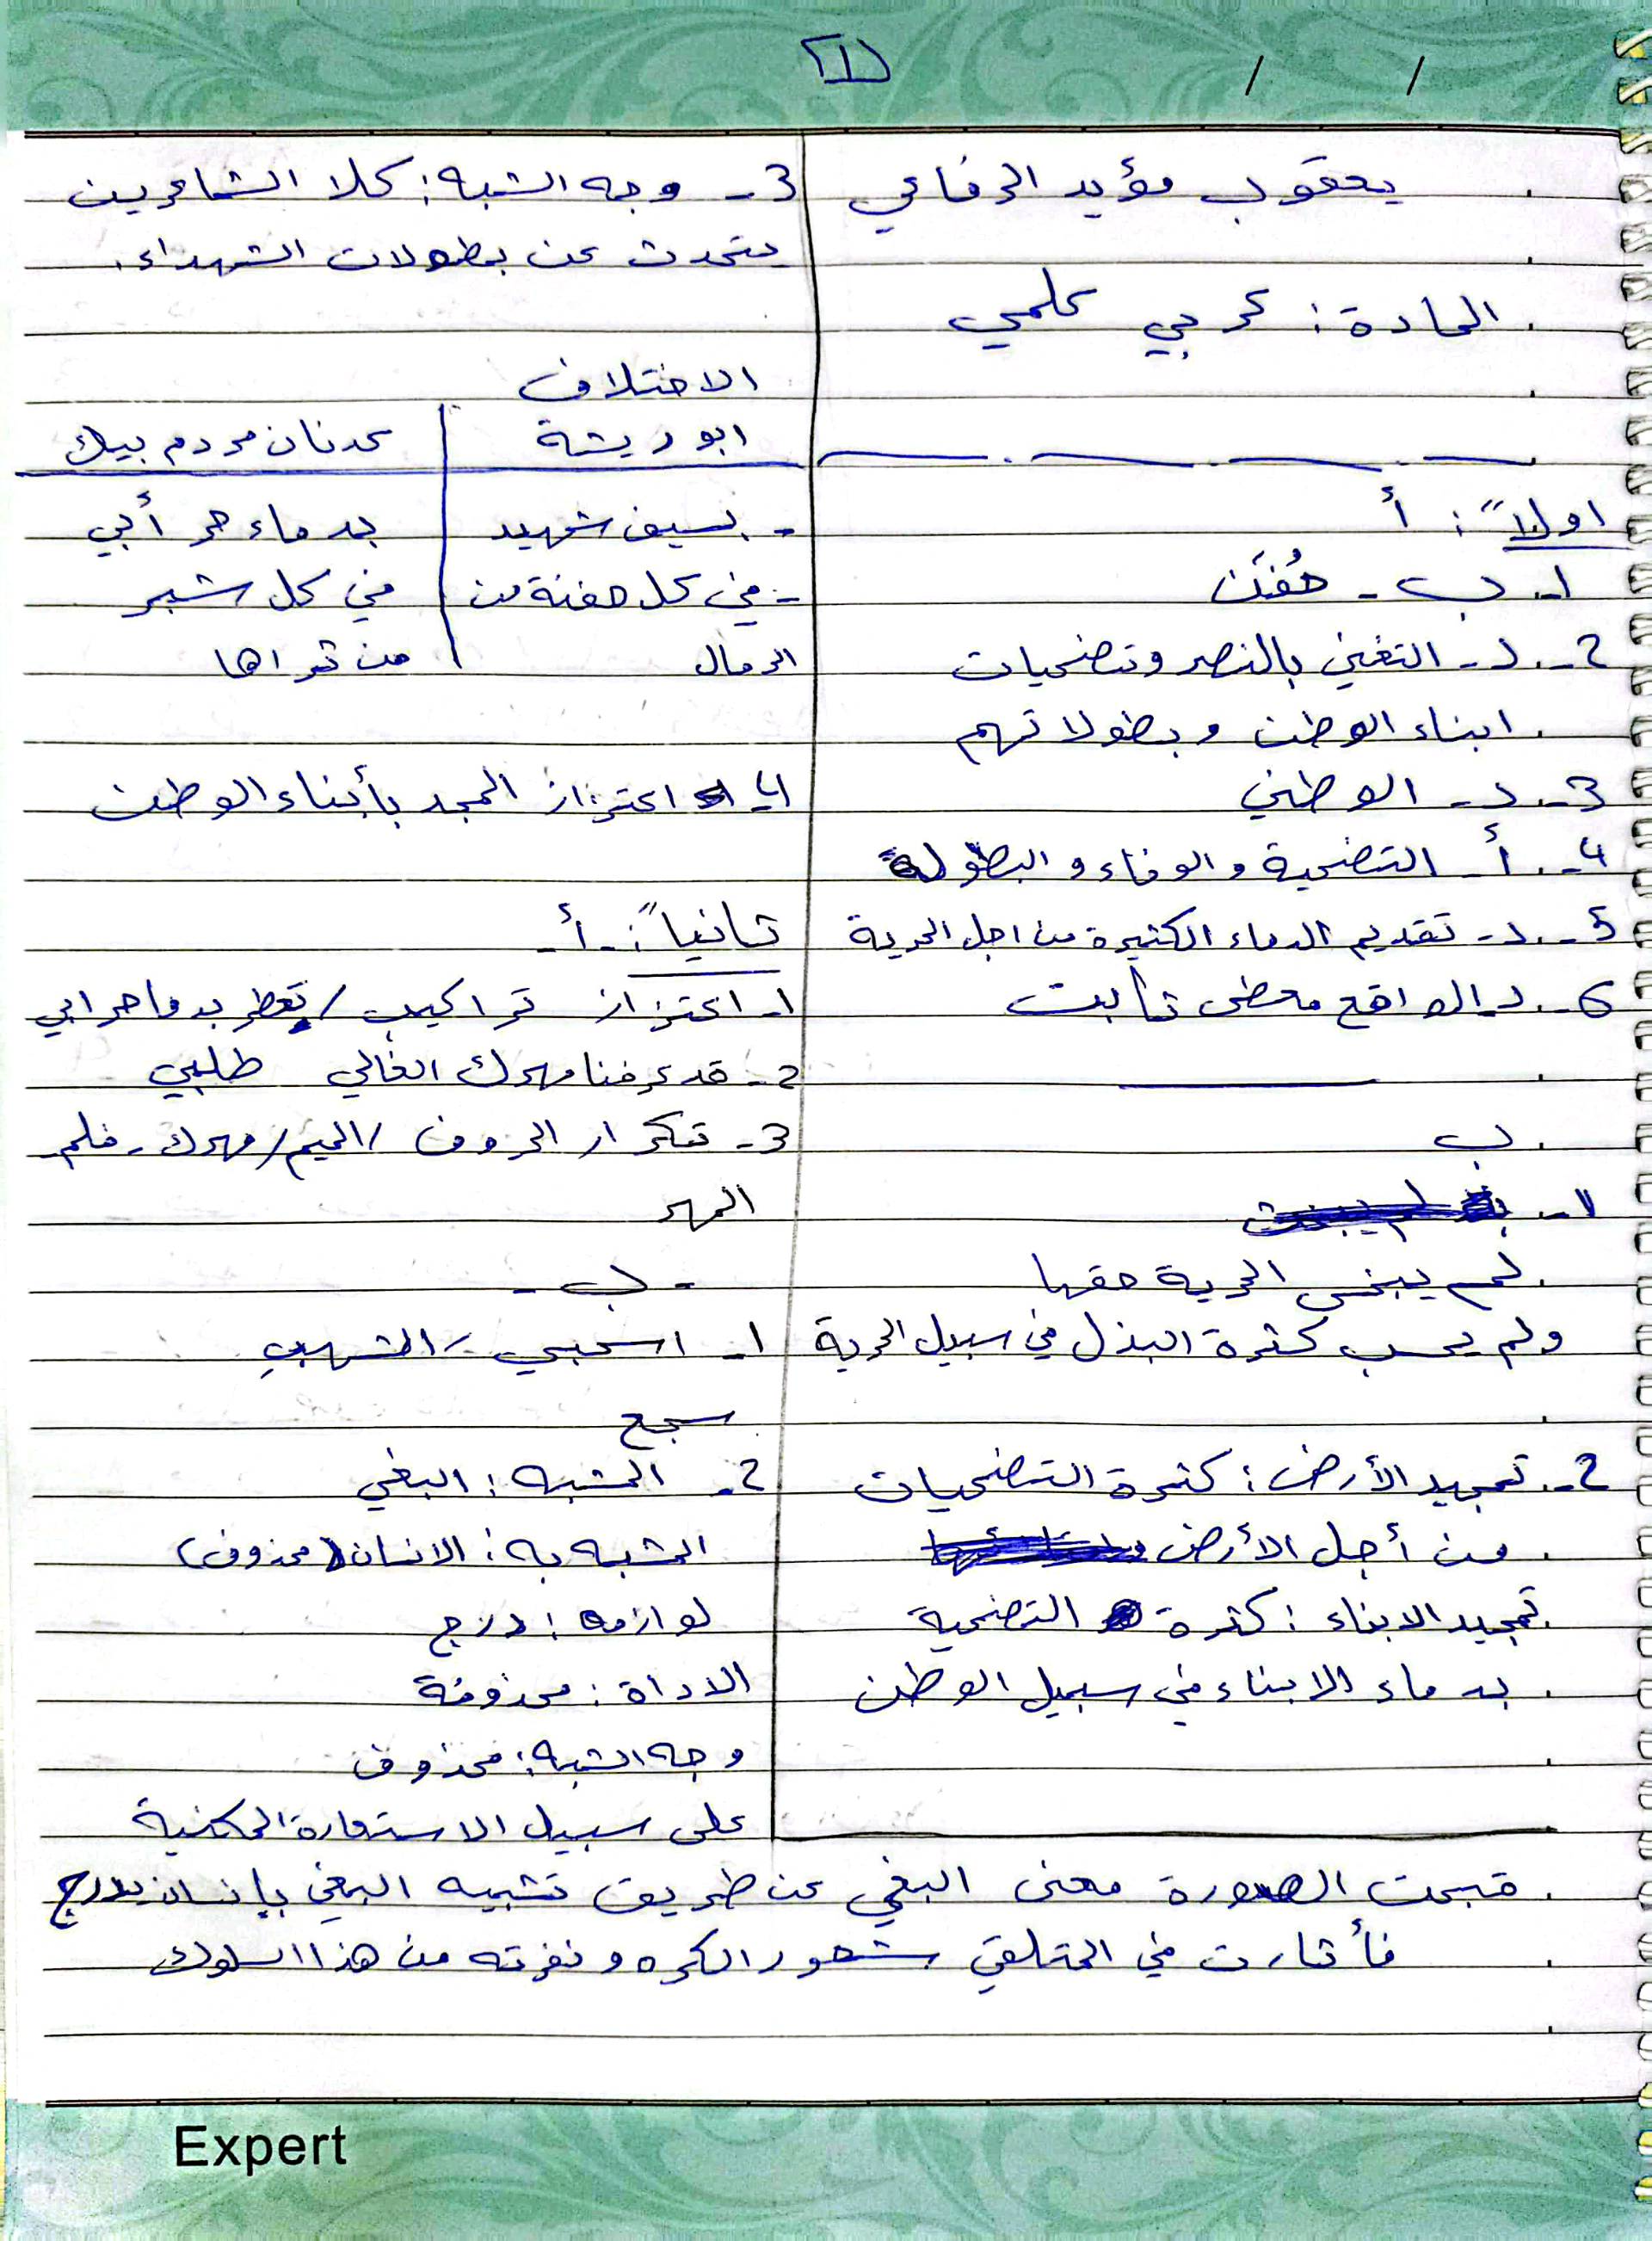 1
/ /
يعقوب مؤيد الرفاعي
المادة: عربي علمي
اولاً: أ
1- ب - حُفَن
2- د - التغني بالنصر وتضحيات
ابناء الوطن وبطولاتهم
3- د - الوطني
4- أ - التضحية والوفاء والبطولة
5- د - تقديم الدماء الكثيرة من اجل الحرية
6- د الواقع معطى ثابت
ب
1-
لم يبخس الحرية حقها
ولم يحسب كثرة البذل في سبيل الحرية
2- تمجيد الأرض: كثرة التضحيات
من أجل الأرض
تمجيد الابناء: كثرة التضحية
بدماء الابناء في سبيل الوطن
3- وجه الشبه: كلا الشاعرين
يتحدث عن بطولات الشهداء.
الاختلاف
ابو ريشة | عدنان مردم بيك
- بسيف شهيد | بدماء حر أبي
- في كل حفنة من | في كل شبر
الرمال | من ثراها
4- اعتزاز المجد بأبناء الوطن
ثانياً: - أ -
1- اعتزاز تراكيب / تعطر بدما حر ابي
2- قد عرفنا مهرك الغالي طلبي
3- تكرار الحروف / الميم / مهرك - فلم -
المهر
- ب -
1- اسحبي / الشهبِ
سجع
2- المشبه: البغي
المشبه به: الانسان (محذوف)
لوازمه: درج
الاداة: محذوفة
وجه الشبه: محذوف
على سبيل الاستعارة المكنية
قبحت الصورة معنى البغي عن طريق تشبيه البغي بإنسان يدرج
فأثارت في المتلقي شعور الكره ونفرته من هذا السلوك
Expert